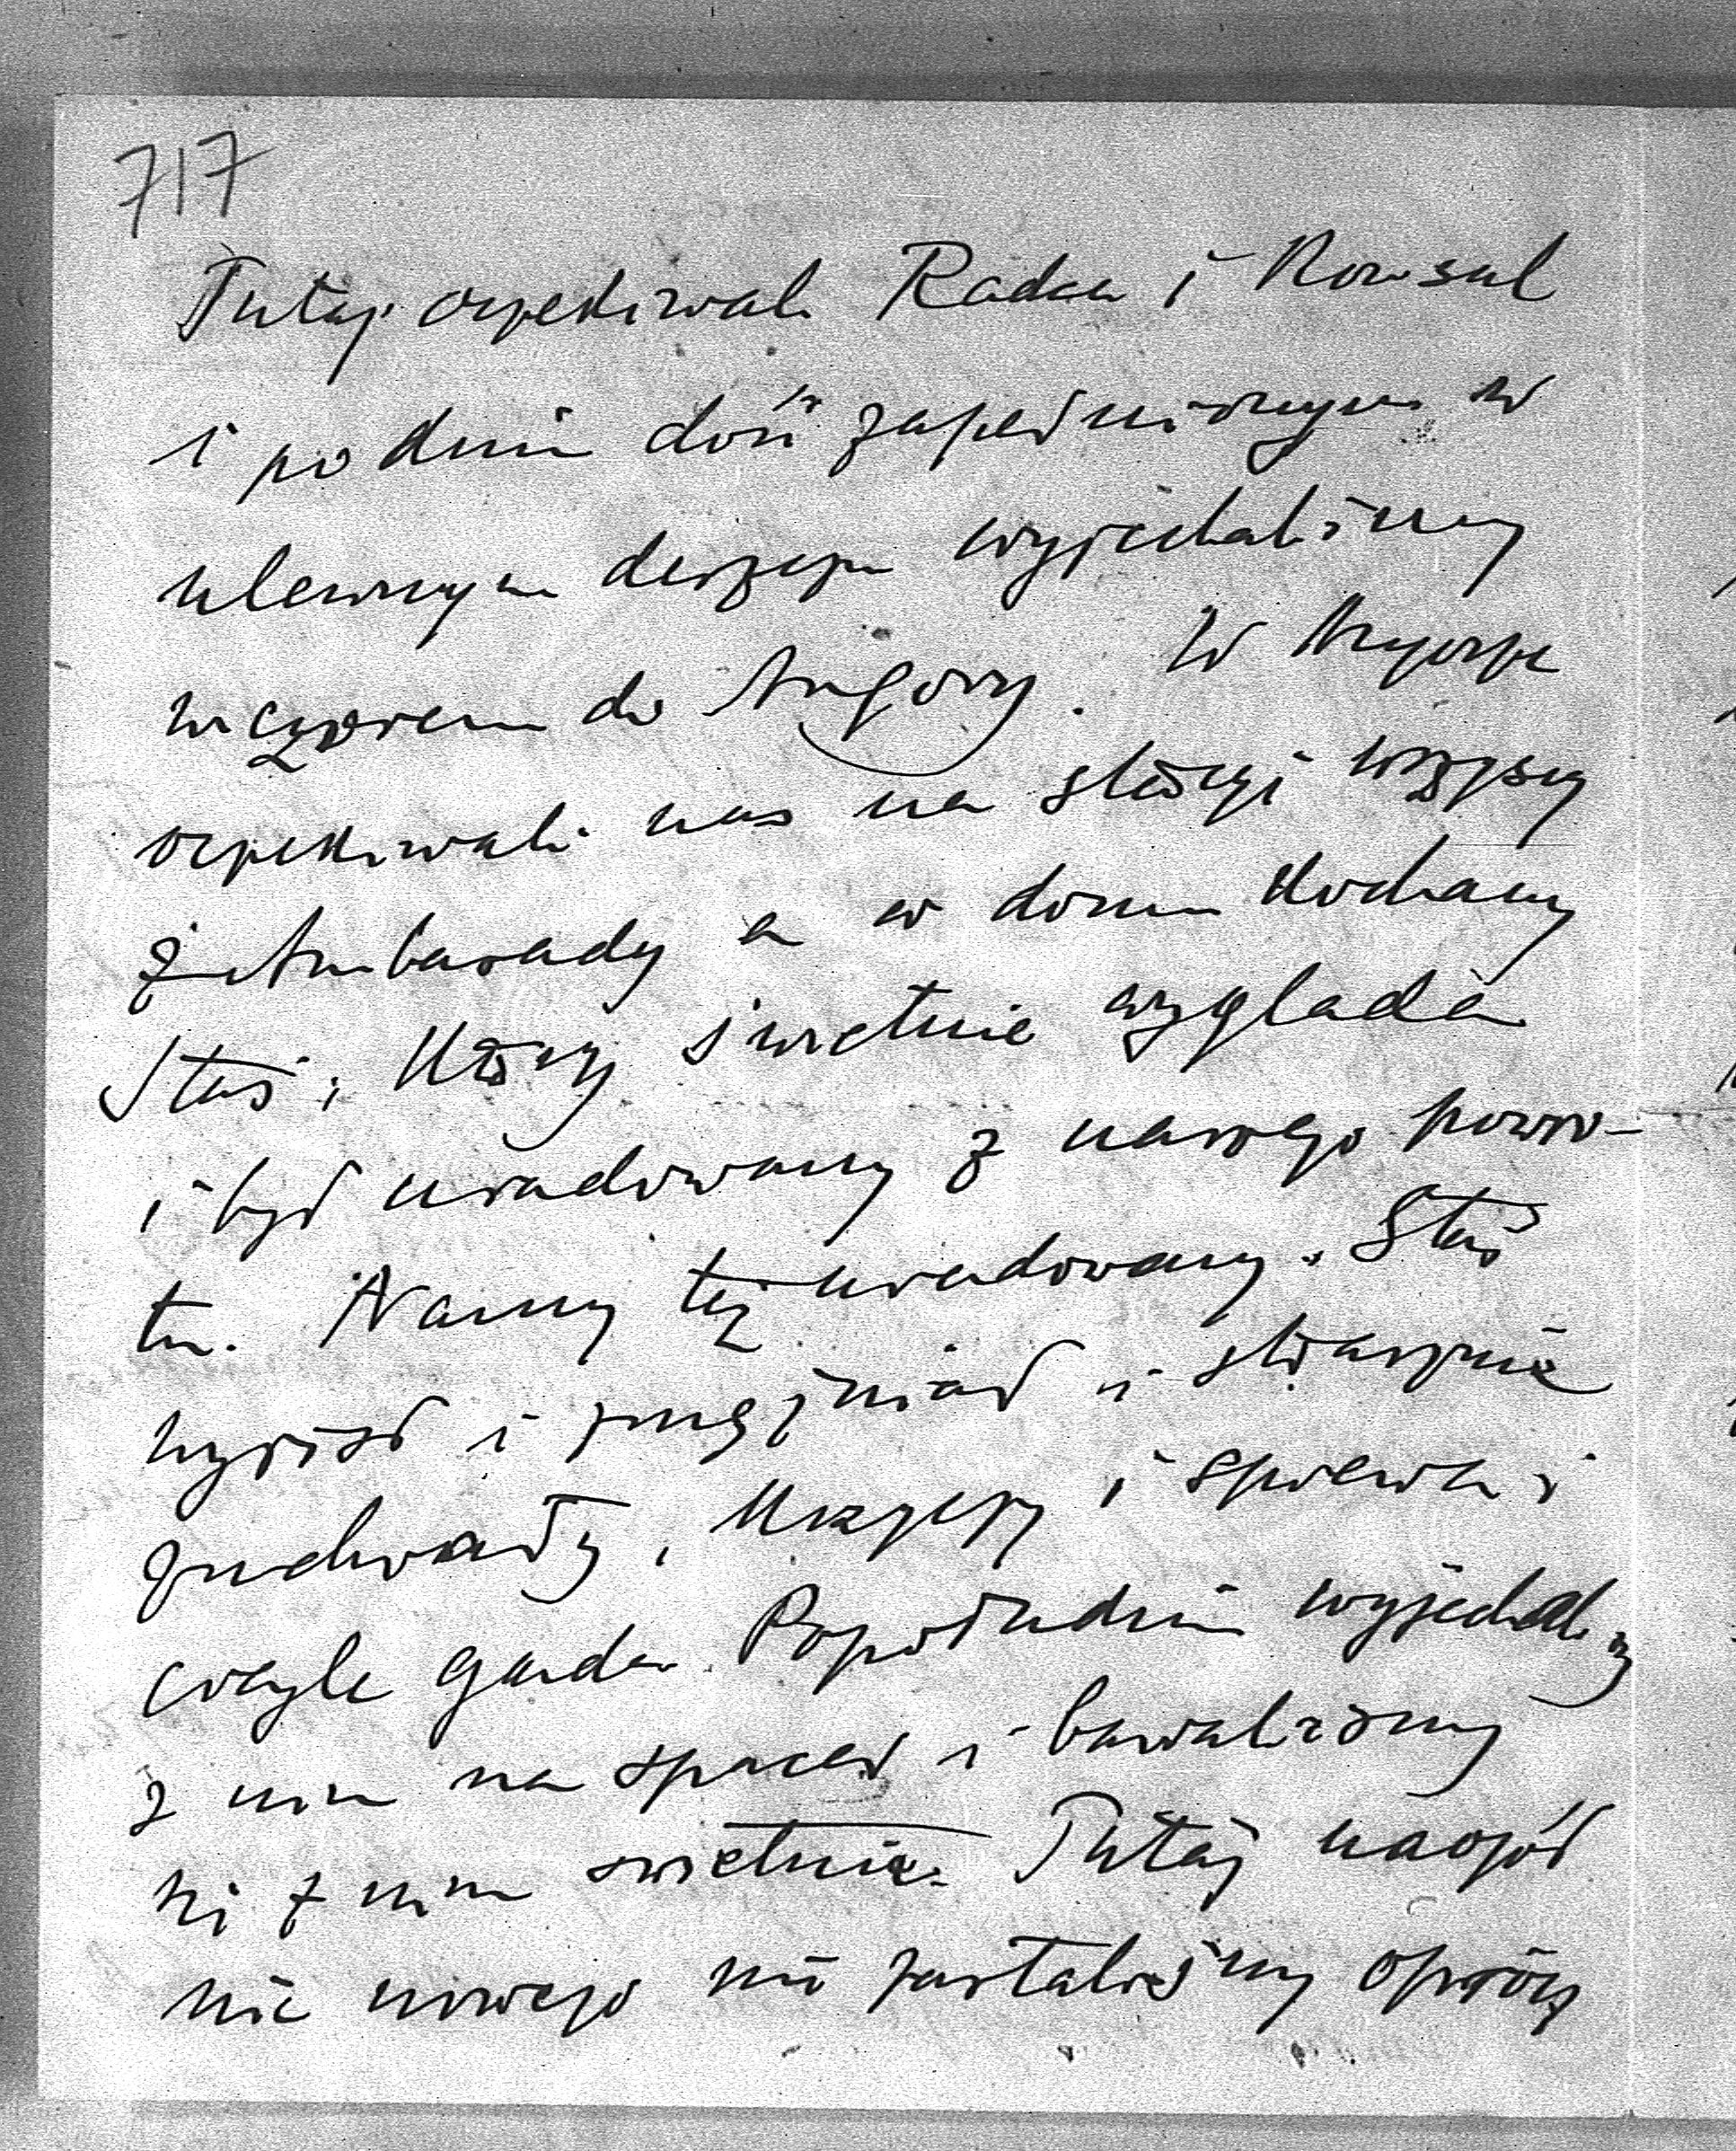 717
Tutaj oczekiwali Radca i Konsul
i po dniu dość zapełnionym w
ulewnym deszczu wyjechaliśmy
wieczorem do Angory. W
oczekiwali nas na stacji wszyscy
z Ambasady a w domu kochany
Staś, który świetnie wygląda
i był uradowany z naszego powro-
tu. Niamy też uradowany. Staś
wyrósł i zmężniał i strasznie
zuchwały, krzyczy i śpiewa i
ciągle gada. Popołudniu wyjechali
z nim na spacer i bawaliśmy
się z nim świetnie. Tutaj naogół
nic nowego nie zastaliśmy oprócz